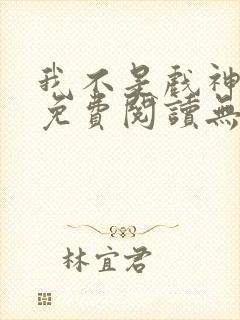 我不是戲神
免費閱讀無
林宜君